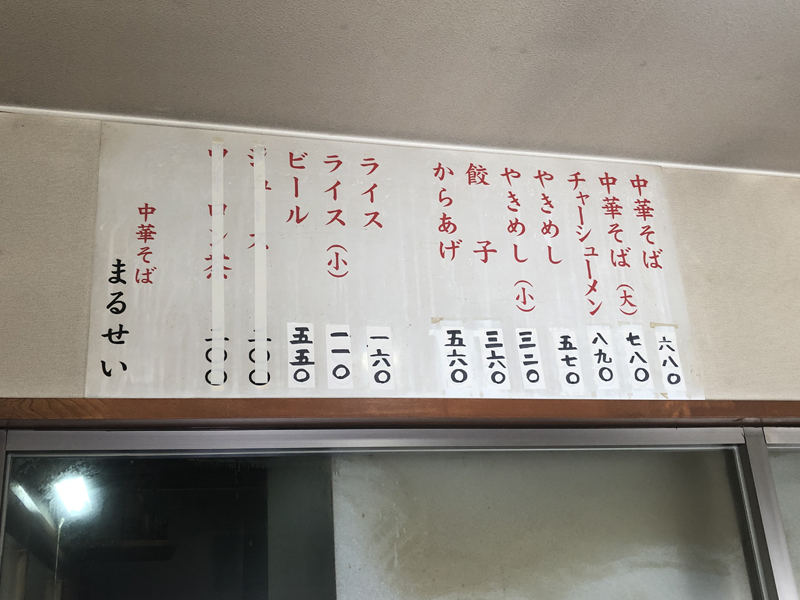 中華そば 六八〇
中華そば（大） 七八〇
チャーシューメン 八九〇
やきめし 五七〇
やきめし（小） 三二〇
餃子 三六〇
からあげ 五六〇
ライス 一六〇
ライス（小） 一一〇
ビール 五五〇
ジュース 二〇〇
ウーロン茶 二〇〇
中華そば
まるせい